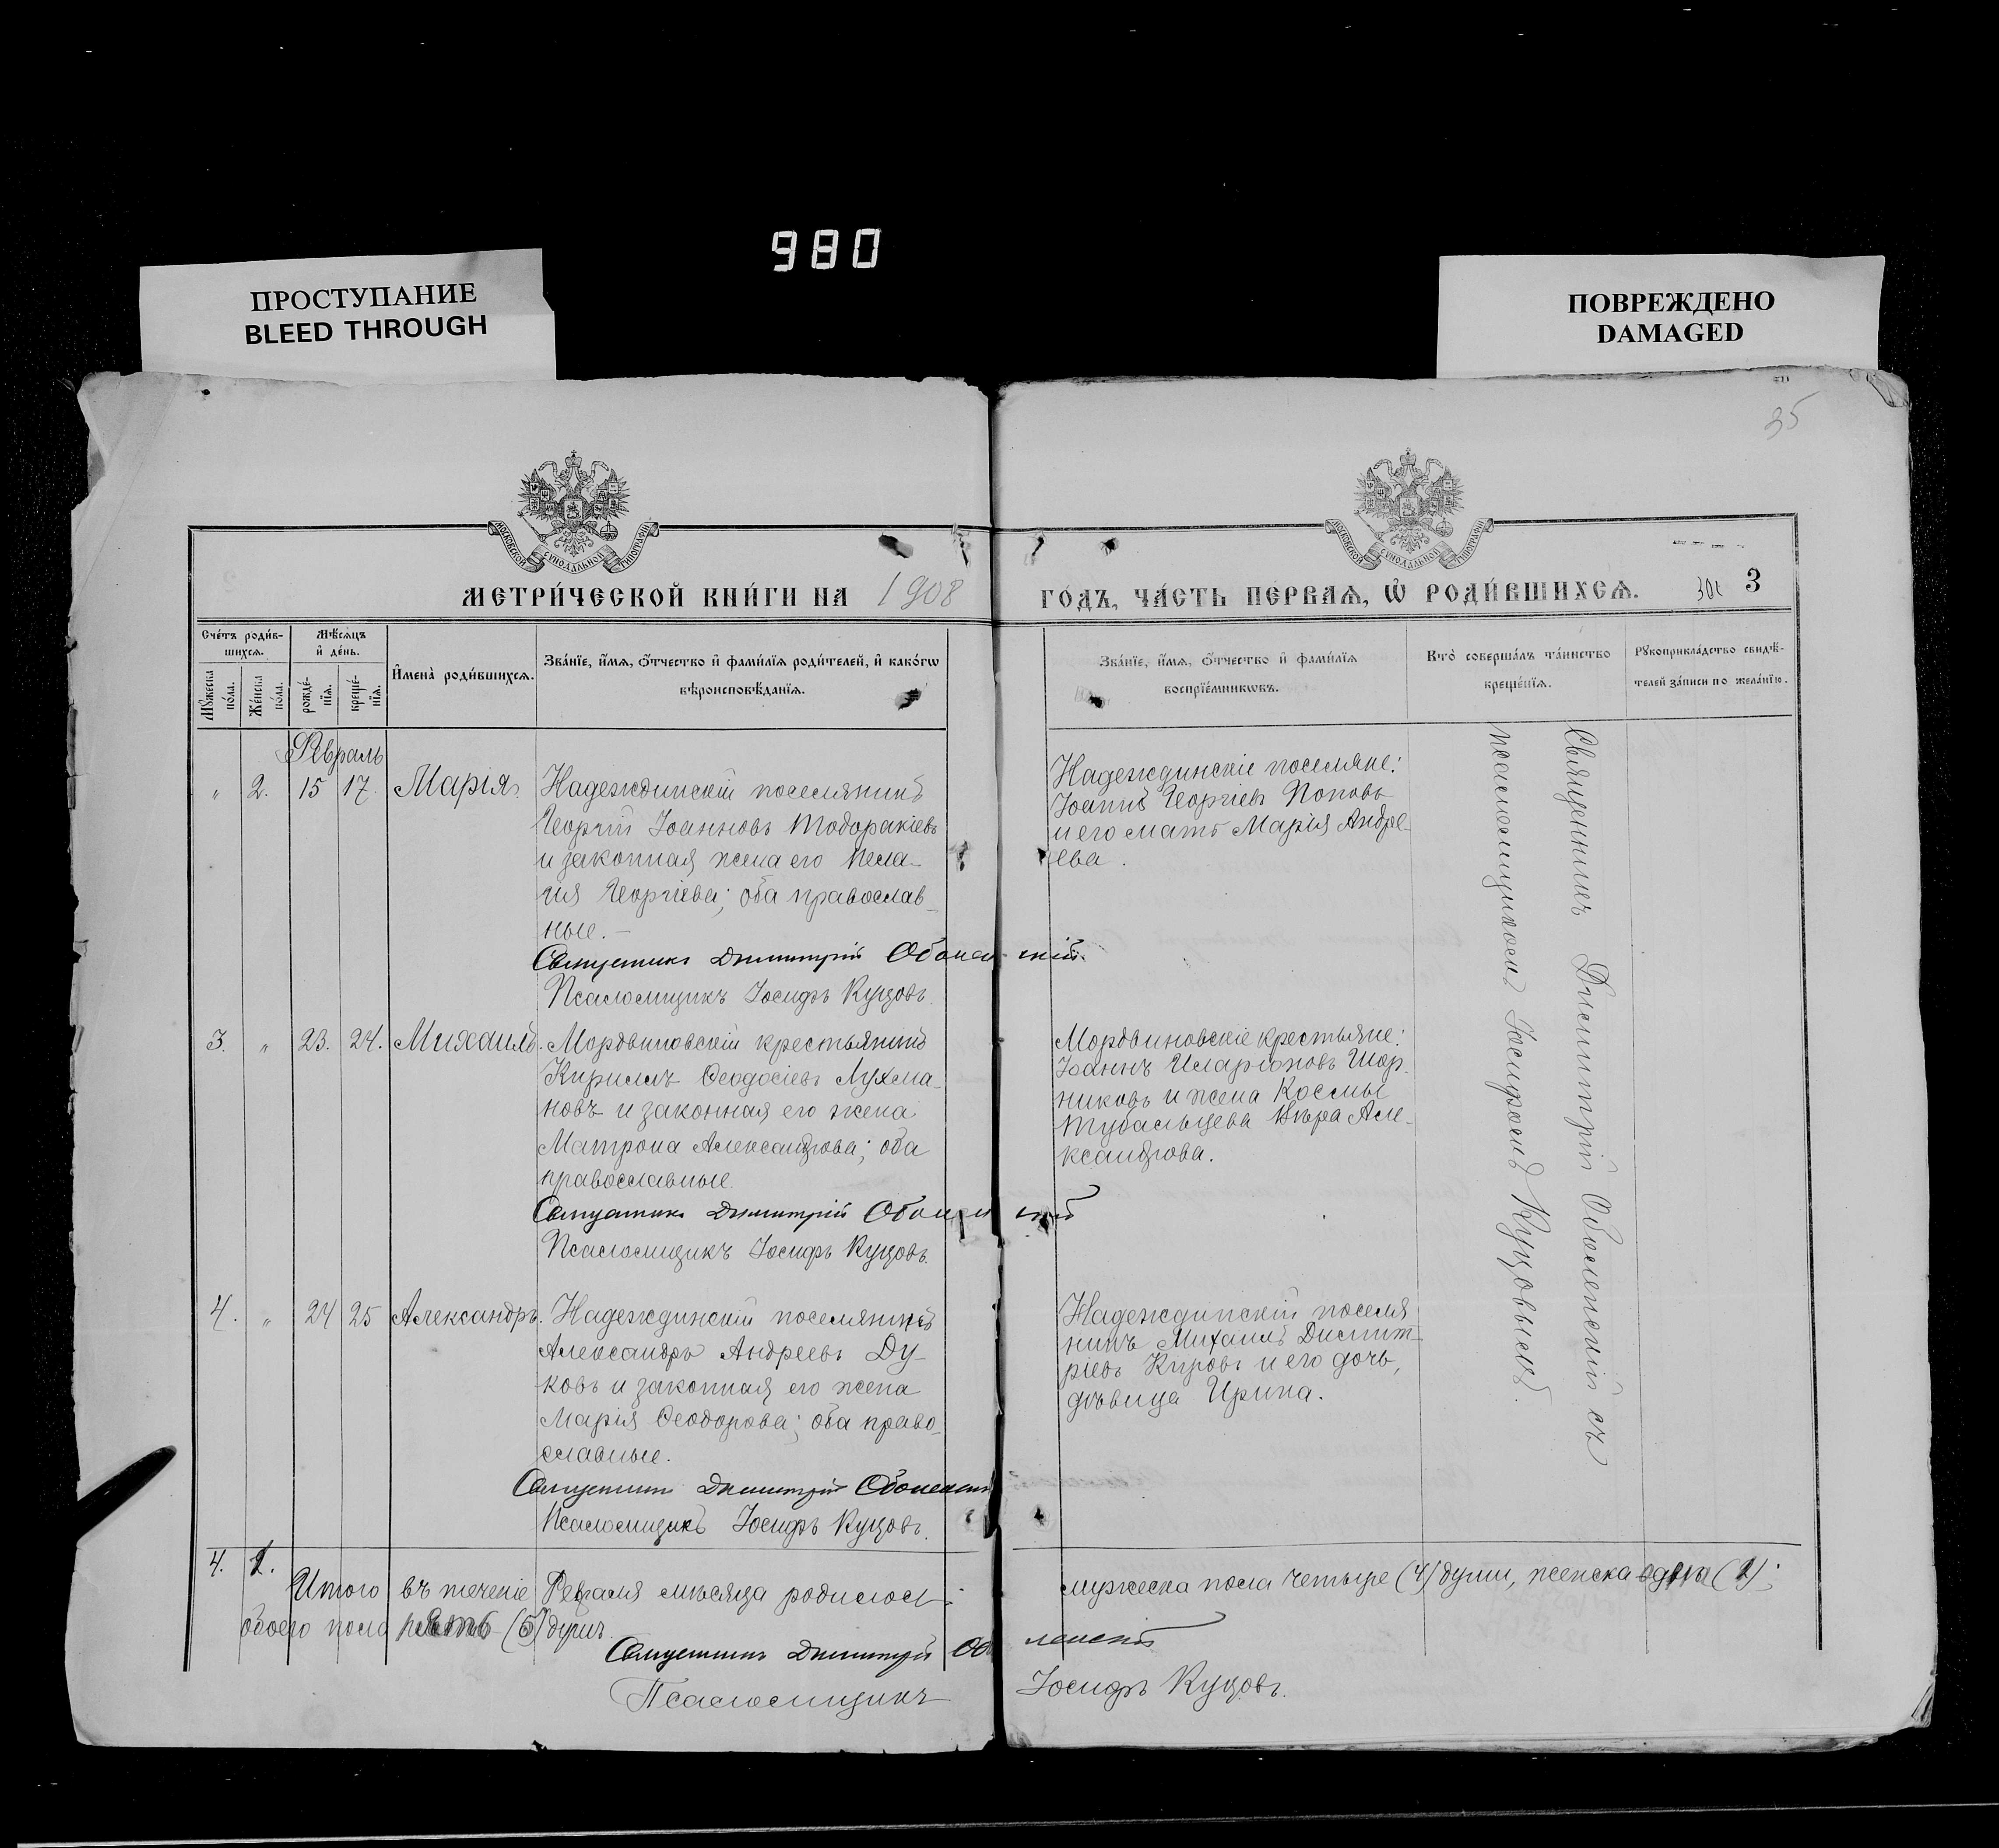 980
ПРОСТУПАНИЕ
BLEED THROUGH
ПОВРЕЖДЕНО
DAMAGED
35
МОСКОВСКОЙ СУНОДАЛЬНОЙ ТИПОГРАФІИ
МОСКОВСКОЙ СУНОДАЛЬНОЙ ТИПОГРАФІИ
МЕТРИ́ЧЕСКОЙ КНИ́ГИ НА 1908
ГО́ДЪ, ЧА́СТЬ ПЕ́РВАѦ, Ѡ҆ РОДИ́ВШИХСѦ. 3
Сче́тъ роди́в-
шихсѧ.
Мѣ́сѧцъ
и҆ де́нь.
Мꙋ́жеска
по́ла.
Же́нска
по́ла.
рожде́-
нїѧ.
креще́-
нїѧ.
И҆мена̀ роди́вшихсѧ.
Зва́нїе, и҆́мѧ, ѻ҆́тчество и҆ фами́лїѧ роди́телей, и҆ како́гѡ
вѣроисповѣ́данїѧ.
Зва́нїе, и҆́мѧ, ѻ҆́тчество и҆ фами́лїѧ
воспрїе́мникѡвъ.
Кто̀ соверша́лъ та́инство
креще́нїѧ.
Рꙋкоприкла́дство свидѣ́-
телей за́писи по жела́нїю.
Февраль
" 2. 15 17. Марія.
Надеждинскій поселянинъ
Георгій Іоанновъ Тодоракіевъ
и законная жена его Пела-
гія Георгіева; оба православ-
ные.
Священникъ Димитрій Оболенскій.
Псаломщикъ Іосифъ Куцовъ.
Надеждинскіе поселяне:
Іоаннъ Георгіевъ Поповъ
и его мать Марія Андре-
ева.
Священникъ Димитрій Оболенскій съ
псаломщикомъ Іосифомъ Куцовымъ.
3. " 23. 24. Михаилъ.
Мордвиновскій крестьянинъ
Кириллъ Феодосіевъ Лухма-
новъ и законная его жена
Матрона Александрова; оба
православные.
Священникъ Димитрій Оболенскій
Псаломщикъ Іосифъ Куцовъ.
Мордвиновскіе крестьяне:
Іоаннъ Иларіоновъ Шор-
никовъ и жена Космы
Тубальцева Вѣра Але-
ксандрова.
4. " 24 25 Александръ.
Надеждинскій поселянинъ
Александръ Андреевъ Ду-
ковъ и законная его жена
Марія Феодорова; оба право-
славные.
Священникъ Димитрій Оболенскій
Псаломщикъ Іосифъ Куцовъ.
Надеждинскій поселя
нинъ Михаилъ Димит-
ріевъ Кировъ и его дочь,
дѣвица Ирина.
4. 1.
Итого въ теченіе Февраля мѣсяца родилось:
мужеска пола четыре (4) души, женска одна (1);
обоего пола пять (5) душъ.
Священникъ Димитрій Оболенскій
Псаломщикъ Іосифъ Куцовъ.